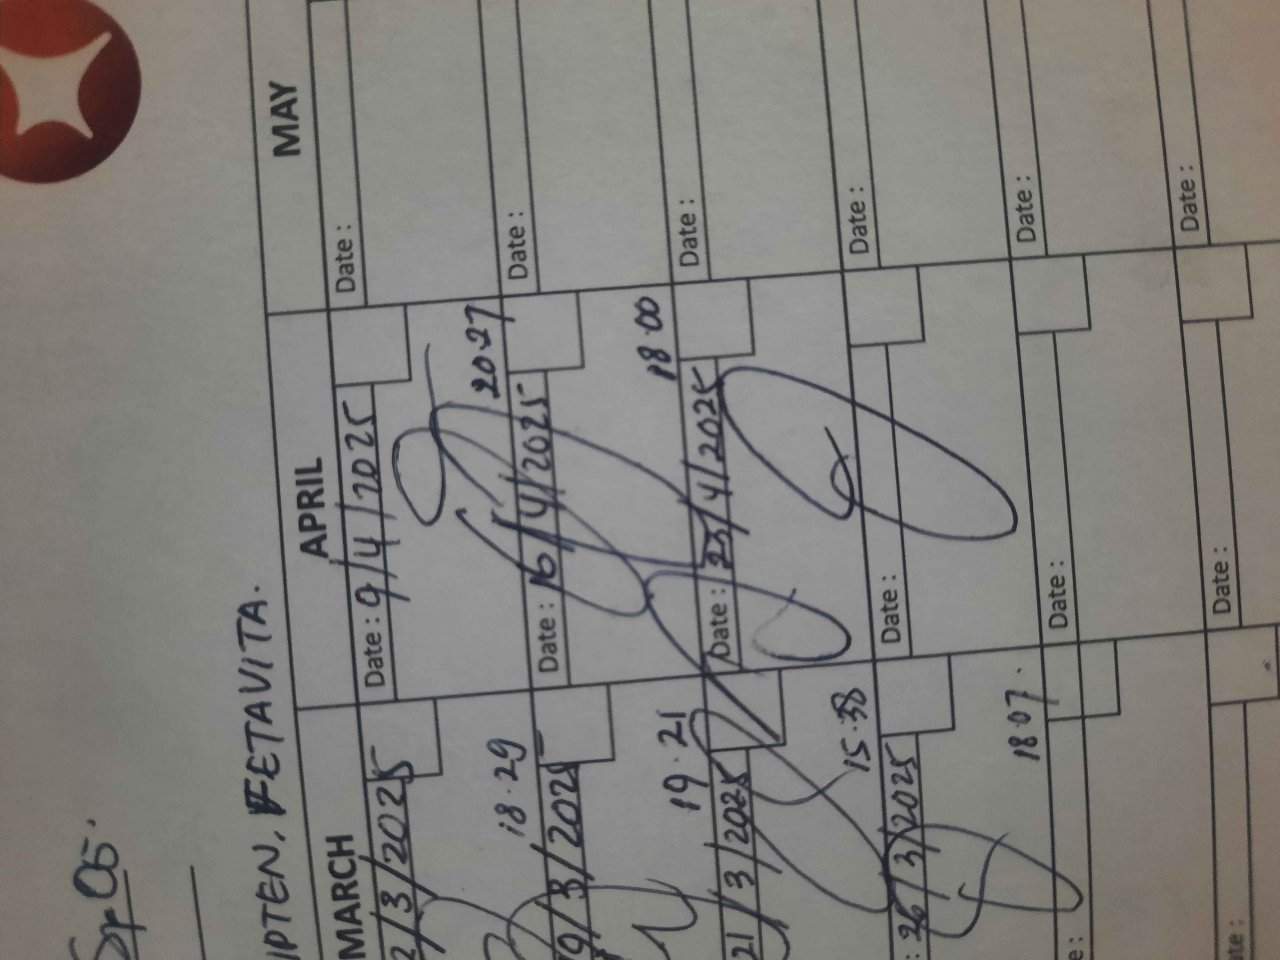 Sp OG.
IPTEN, FETAVITA.
MARCH APRIL MAY
2/3/2025 Date: 9/4/2025 Date:
18.29 20.27
9/3/2025 Date: 16/4/2025 Date:
19.21 18.00
21/3/2025 Date: 23/4/2025 Date:
15.38
: 26/3/2025 Date: Date:
18.07.
e: Date: Date:
ate: Date: Date: